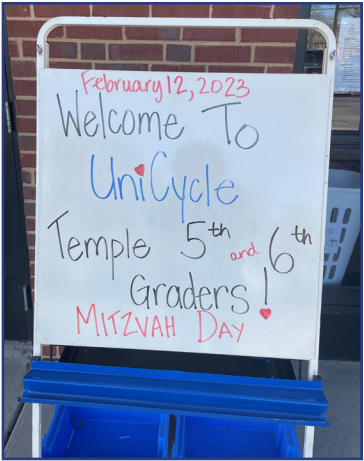 February 12, 2023
Welcome To
UniCycle
Temple 5th and 6th
Graders!
MITZVAH DAY